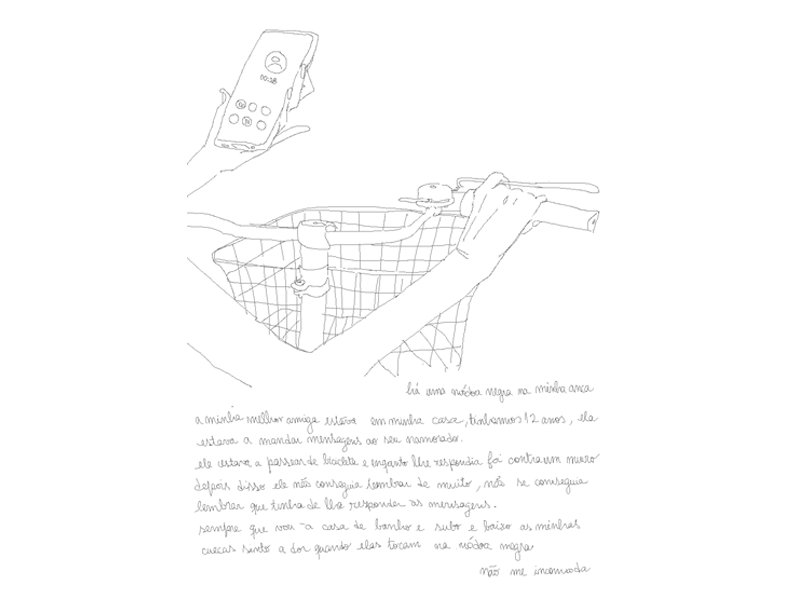 00:28
há uma nódoa negra na minha anca
a minha melhor amiga estava em minha casa, tínhamos 12 anos, ela
estava a mandar mensagens ao seu namorado.
ele estava a passear de bicicleta e enquanto lhe respondia foi contra um muro
depois disso ele não conseguia lembrar de muito, não se conseguia
lembrar que tinha de lhe responder às mensagens.
sempre que vou à casa de banho e subo e baixo as minhas
cuecas sinto a dor quando elas tocam na nódoa negra
não me incomoda